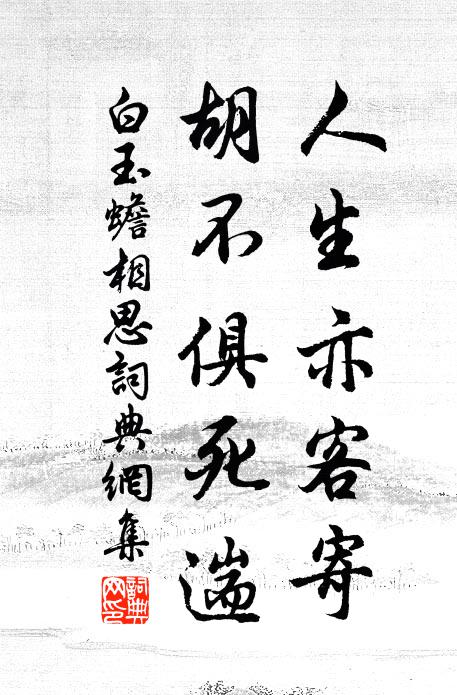 人生亦客寄
胡不俱死遄
白玉蟾相思詞典網集
詞典網印